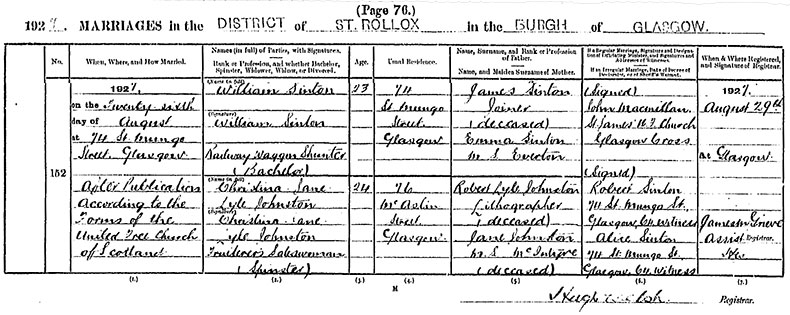 (Page 76.)
1927. MARRIAGES in the DISTRICT of ST. ROLLOX in the BURGH of GLASGOW.
No.
When, Where, and How Married.
Names (in full) of Parties, with Signatures.
Rank or Profession, and whether Bachelor, Spinster, Widower, Widow, or Divorced.
Age.
Usual Residence.
Name, Surname, and Rank or Profession of Father.
Name, and Maiden Surname of Mother.
If a Regular Marriage, Signatures and Designation of Officiating Minister, and Signatures and Addresses of Witnesses.
If an Irregular Marriage, Date of
When & Where Registered, and Signature of Registrar.
152
1927,
on the Twenty sixth
day of August
at 74 St. Mungo
Street, Glasgow
After Publication
According to the
Forms of the
United Free Church
of Scotland
(Name in full)
William Sinton
(Signature)
William Sinton
Railway Waggon Shunter
(Bachelor)
(Name in full)
Christina Jane
Lyle Johnston
(Signature)
Christina Jane
Lyle Johnston
Fruiterer's Saleswoman
(Spinster)
23
24
74
St. Mungo
Street
Glasgow
76
McAslin
Street
Glasgow
James Sinton
Joiner
(deceased)
Emma Sinton
M.S.
Robert Lyle Johnston
Lithographer
(deceased)
Jane Johnston
M.S. McIntyre
(deceased)
(Signed)
John Macmillan
St. James U.F. Church
Glasgow Cross
(Signed)
Robert Sinton
74 St. Mungo St.
Glasgow, C4, Witness
Alice Sinton
74 St. Mungo St.
Glasgow, C4, Witness
1927,
August 29th
at Glasgow.
James M. Grieve
Assist. Registrar.
(1.) (2.) (3.) (4.) (5.) (6.) (7.)
M
Hugh Registrar.